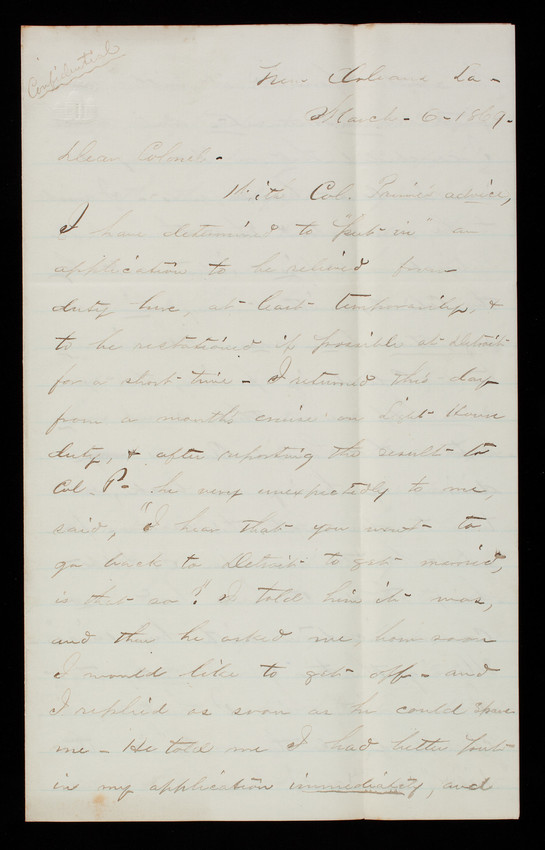 Confidential
New Orleans La -
March - 6 - 1869 -
Dear Colonel -
With Col. advice,
I have determined to "put in" an
application to be relieved from
duty here, at least temporarily, &
to be restationed if possible at Detroit
for a short time - I returned this day
from a months cruise on Light House
duty, & after reporting the result to
Col. P - he very unexpectedly to me,
said, "I hear that you want to
go back to Detroit to get married,
is that so? I told him it was,
and then he asked me, how soon
I would like to get off - and
I replied as soon as he could spare
me - He told me I had better put
in my application immediately, and